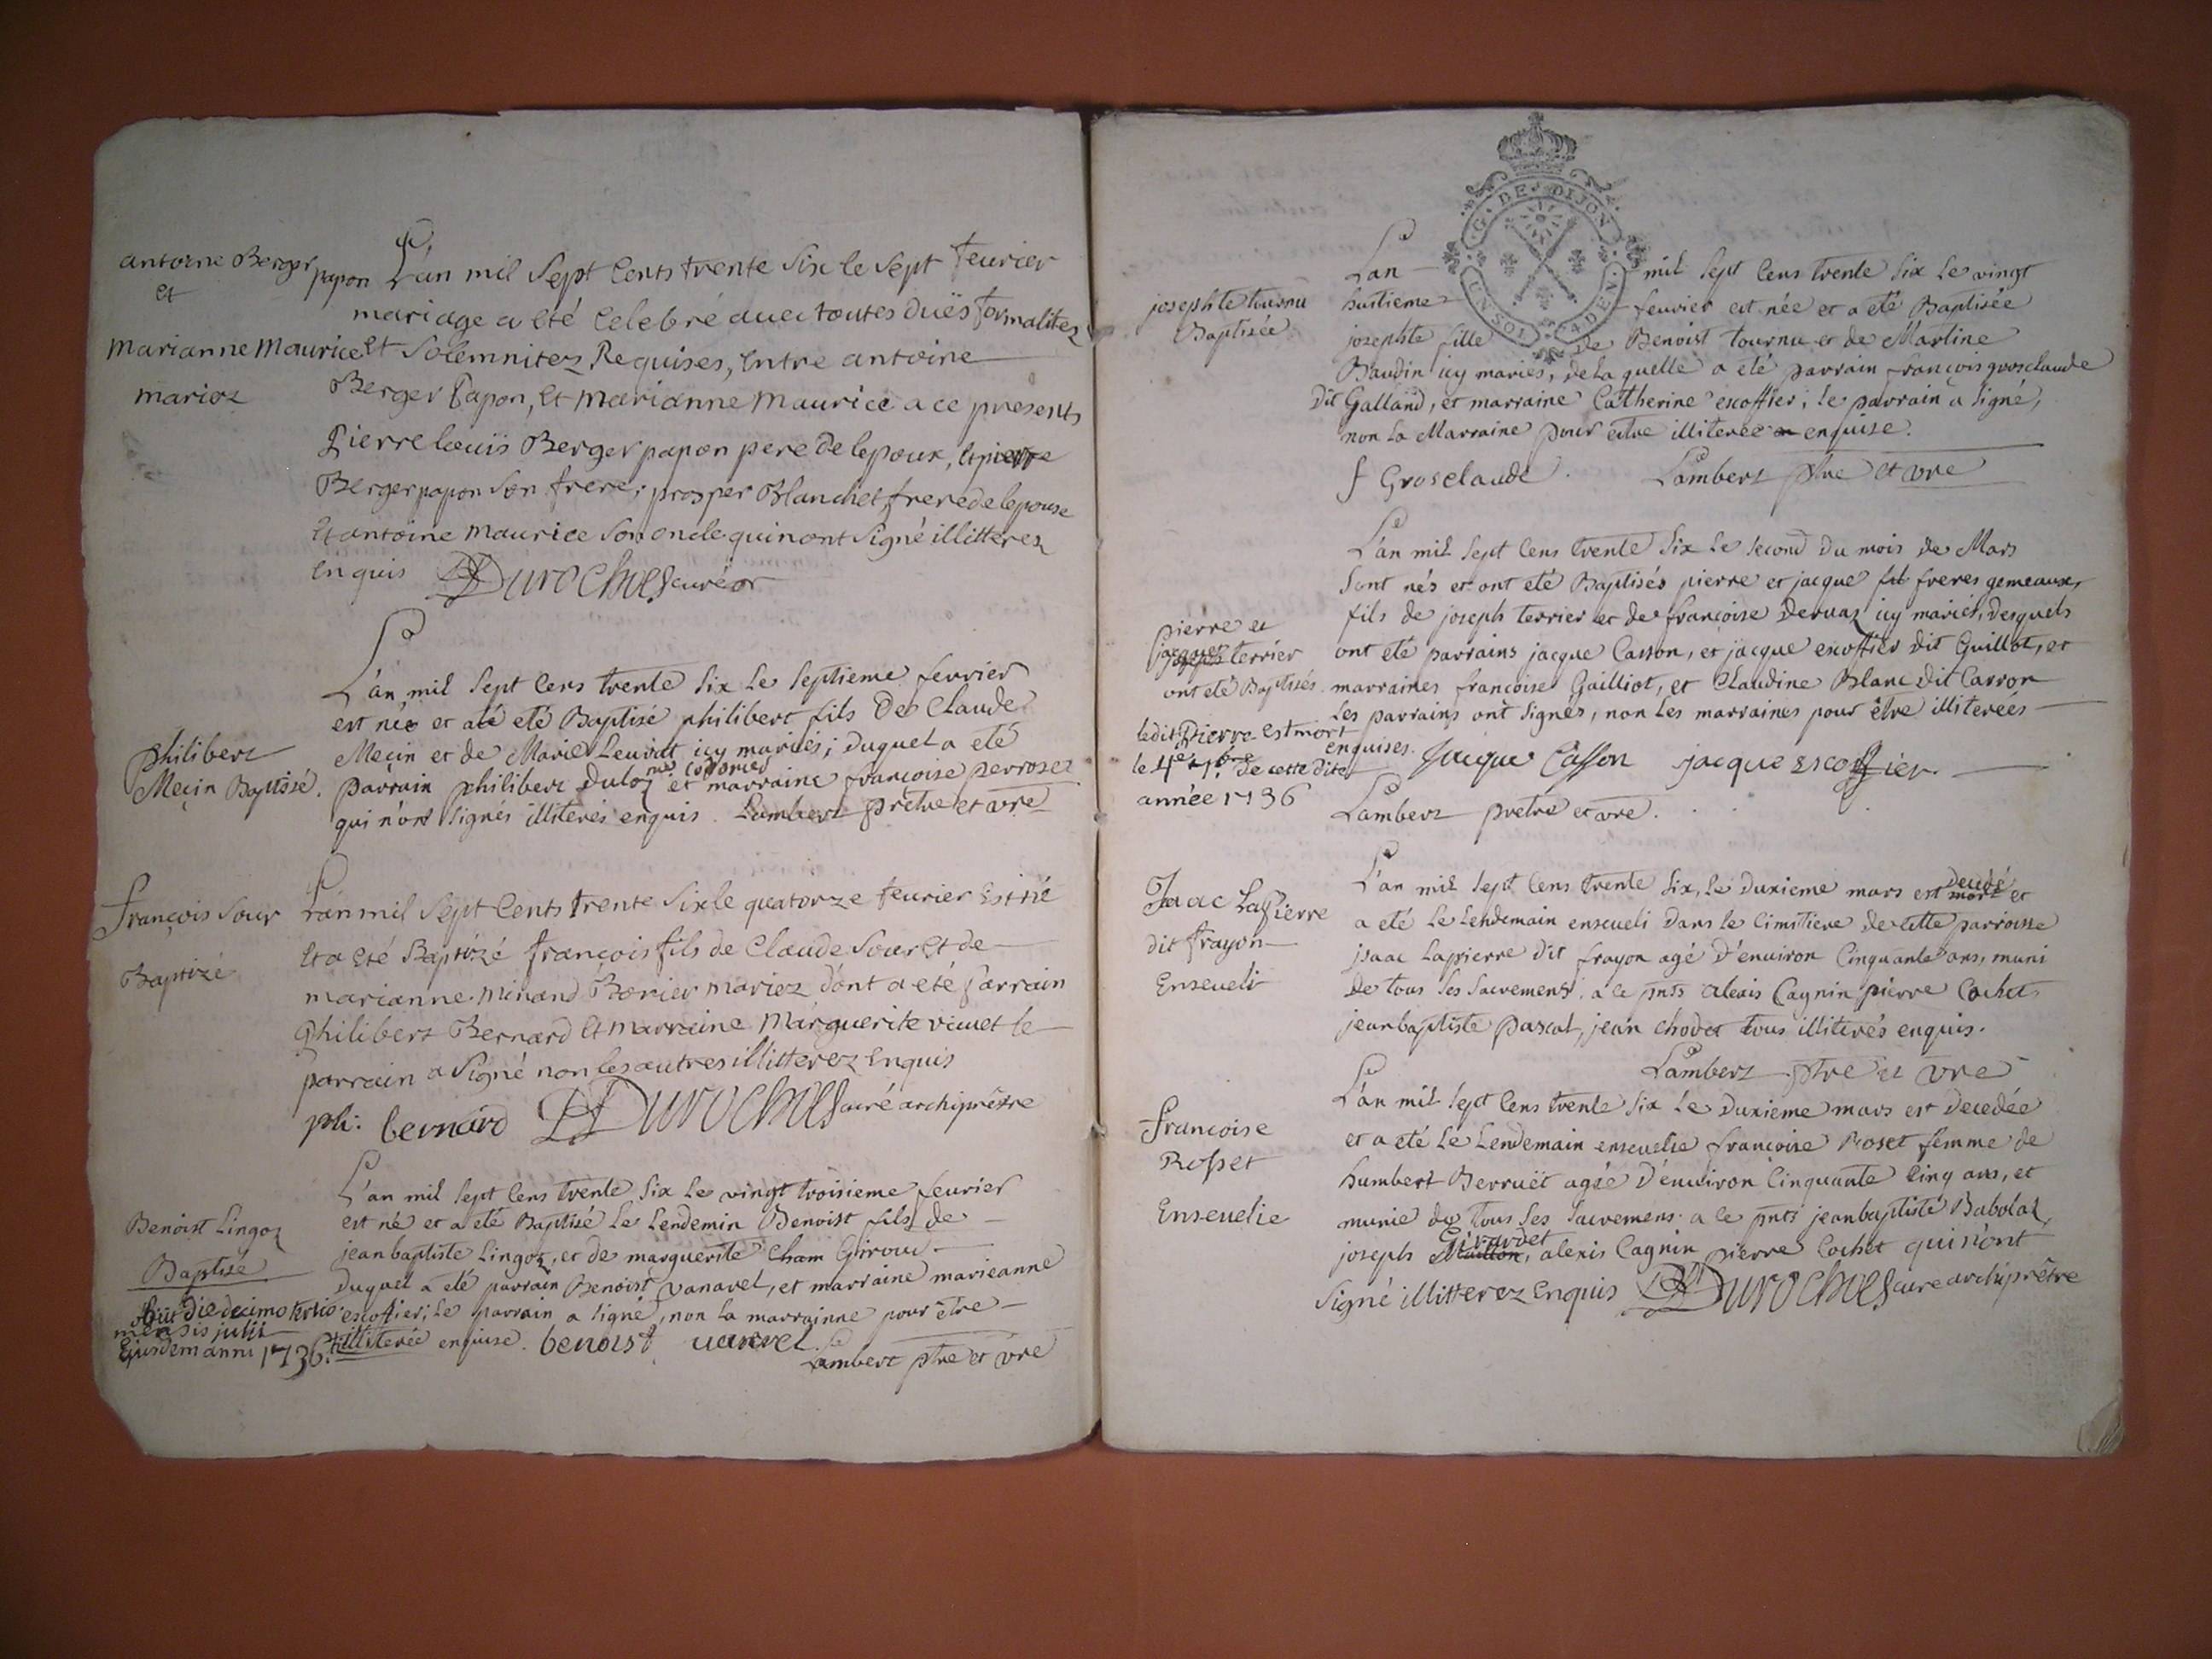 antoine Berger papon
et
marianne maurice
mariez
L'an mil Sept Cents trente Six le Sept feurier
mariage a eté Celebré auec toutes duës formalitez
et Solemnitez Requises, Entre antoine
Berger papon, et marianne maurice a ce presents
pierre louis Berger papon pere de lepoux, et pierre
Berger papon son frere; prosper Blanchet, frere de lepouse
Et antoine maurice son oncle qui nont Signé illitterez
Enquis Duroches curé
philibert
Meçin Baptisé.
L'an mil sept cens trente six le septieme fevrier
est né et a été Baptisé philibert fils De Claude
Meçin et de Marie icy mariés; duquel a eté
parrain philibert et marraine françoise perroset
qui n'ont signés illiterés enquis. Lambert prêtre et vre
françois Sour
Baptizé
L'an mil Sept Cents trente Six le quatorze feurier Est né
Et a Eté Baptizé françois fils de Claude Sour Et de
marianne minand mariez dont a eté parrain
philibert Bernard et marraine marguerite vimet le
parrain a Signé non les autres illitterez Enquis
phi: bernard Duroches curé archiprêtre
Benoist Lingoz
Baptisé
obiit die decimo tertio
mensis julii
Ejusdem anni 1736.
L'an mil sept cens trente six le vingt troisieme feurier
est né et a eté Baptisé le lendemin Benoist fils de
jeanbaptiste Lingoz, et de marguerite Cham Giroud
duquel a eté parrain Benoist vanavel, et marraine marieanne
escoffier; le parrain a signé, non la marrainne pour être
illiterée enquise. benoist vanavel
Lambert ptre et vre
G. DE DIJON
UN SOL 4 DEN.
josephte tournu
Baptisée
L'an mil sept cens trente six le vingt
huitieme feurier est née et a eté Baptisée
josephte fille de Benoist tournu et de Martine
Baudin icy mariés, de la quelle a eté parrain françois grosclaude
Dit Galland, et marraine Catherine escoffier; le parrain a signé,
non la Marraine pour estre illiterée enquise.
f Grosclaude. Lambert ptre et vre
pierre et
jacques terrier
ont eté Baptisés.
ledit pierre est mort
le 4e 7bre de cette dite
année 1736
L'an mil sept cens trente six le second du mois de Mars
sont nés et ont eté Baptisés pierre et jacque fil freres gemeaux,
fils de joseph terrier et de françoise Deruaz icy mariés, desquels
ont eté parrains jacque Casson, et jacque escoffier dit Guillot, et
marraines françoise Gailliot, et Claudine Blanc dit Carron
les parrains ont signés, non les marraines pour être illiterées
enquises. Jacque Casson jacque escoffier.
Lambert pretre et vre.
Isaac LaPierre
dit frayon
Enseueli
L'an mil sept cens trente six, le duxieme mars est decedé mort et
a eté le lendemain enseueli dans le cimitiere de cette parroisse
isaac lapierre dit frayon agé d'enuiron cinquante ans, muni
de tous les sacremens. a ce pnts alexis Cagnin pierre Cochet
jeanbaptiste pascal, jean chodet tous illiterés enquis.
Lambert ptre et vre
françoise
Rosset
Enseuelie
L'an mil sept cens trente six le duxieme mars est decedée
et a eté le lendemain enseuelie françoise Roset femme de
humbert Berruët agée d'enuiron cinquante cinq ans, et
munie de tous les sacremens. a ce pnts jeanbaptiste Babolaz,
joseph Girardet, alexis Cagnin pierre Cochet qui n'ont
signé illitterez Enquis Duroches curé archiprêtre